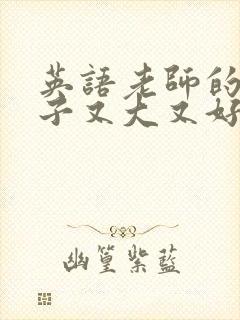 英語老師的
子又大又好
幽篁紫藍